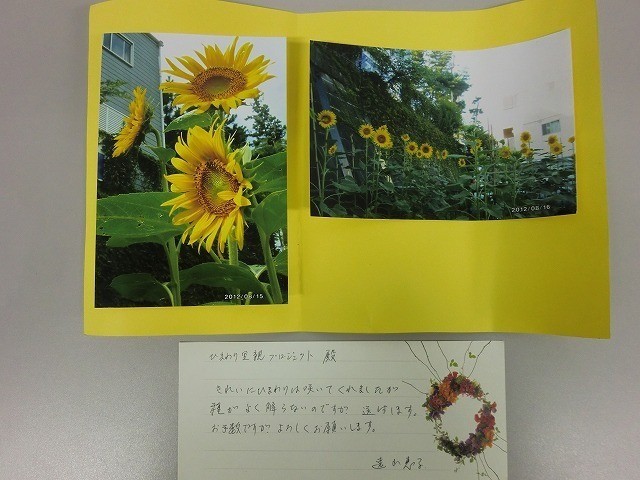 2012/08/15
2012/08/16
ひまわり里親プロジェクト 殿
きれいにひまわりは咲いてくれましたが
種がよく解らないのですが 送ります。
お手数ですがよろしくお願いします。